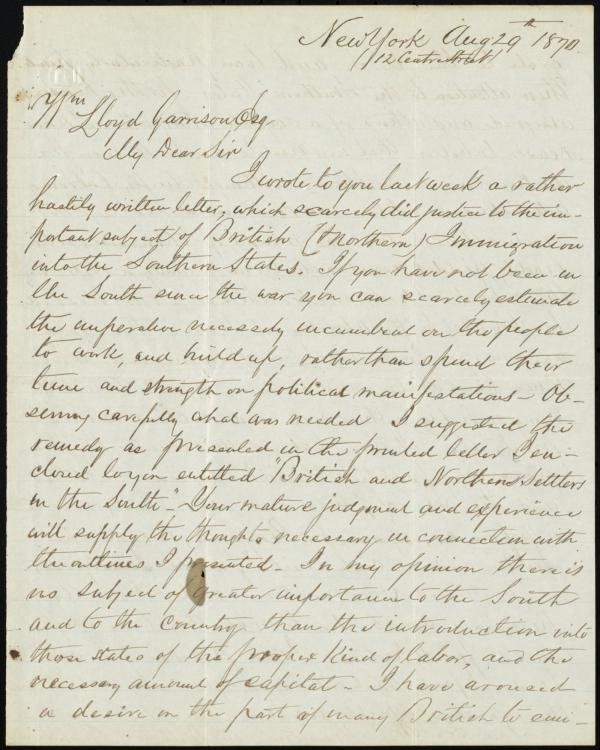 New York Aug 29th 1870.
112 Centre Street
Wm
Lloyd Garrison Esq
My Dear Sir
I wrote to you last week a rather
hastily written letter, which scarcely did justice to the im-
portant subject of British (& Northern) Immigration
into the Southern States. If you have not been in
the South since the war you can scarcely estimate
the imperative necessity incumbent on the people
to work, and build up, rather than spend their
time and strength on political manifestations - Ob-
serving carefully what was needed I suggested the
remedy as presented in the printed letter I en-
closed to you entitled "British and Northern Settlers
in the South" - Your mature judgment and experience
will supply the thoughts necessary in connection with
the outlines I presented - In my opinion there is
no subject of greater importance to the South
and to the country than the introduction into
those states of the proper kind of labor, and the
necessary amount of capital - I have aroused
a desire on the part of many British to emi-